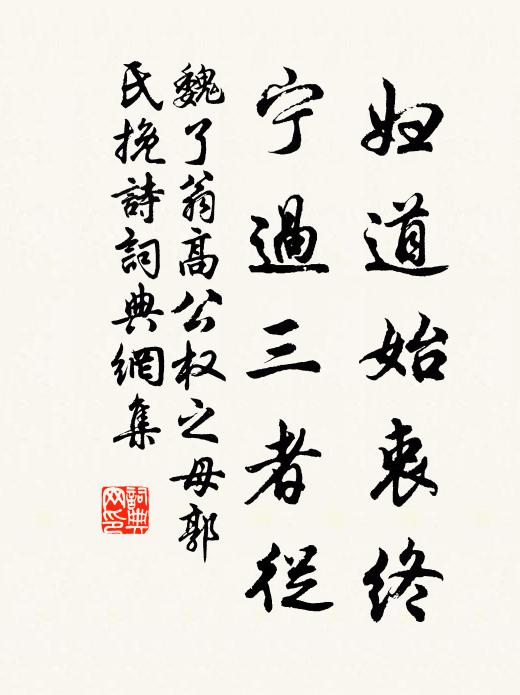 妇道始衷终
宁過三者從
魏了翁高公权之母郭
氏挽詩詞典網集
詞典网印